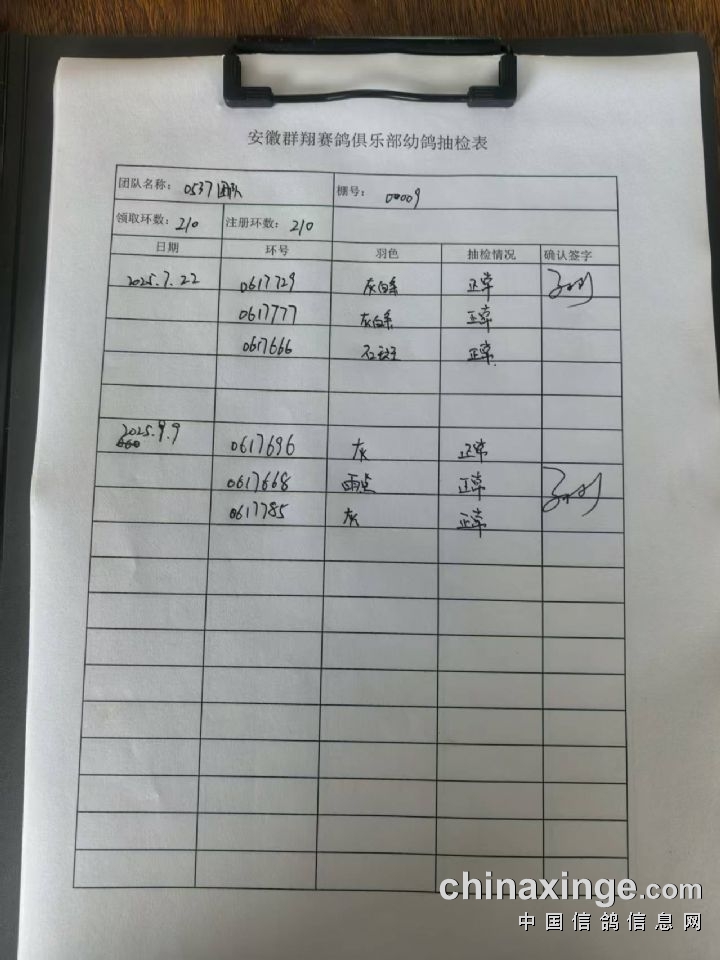 安徽群翔赛鸽俱乐部幼鸽抽检表
团队名称： 0537团队 棚号： 00009
领取环数：210 注册环数：210
日期 环号 羽色 抽检情况 确认签字
2025.7.22 0617729 灰白条 正常
0617777 灰白条 正常
0617666 石斑 正常
2025.9.9 0617696 灰 正常
0617668 雨点 正常
0617785 灰 正常
chinaxinge.com
中国信鸽信息网